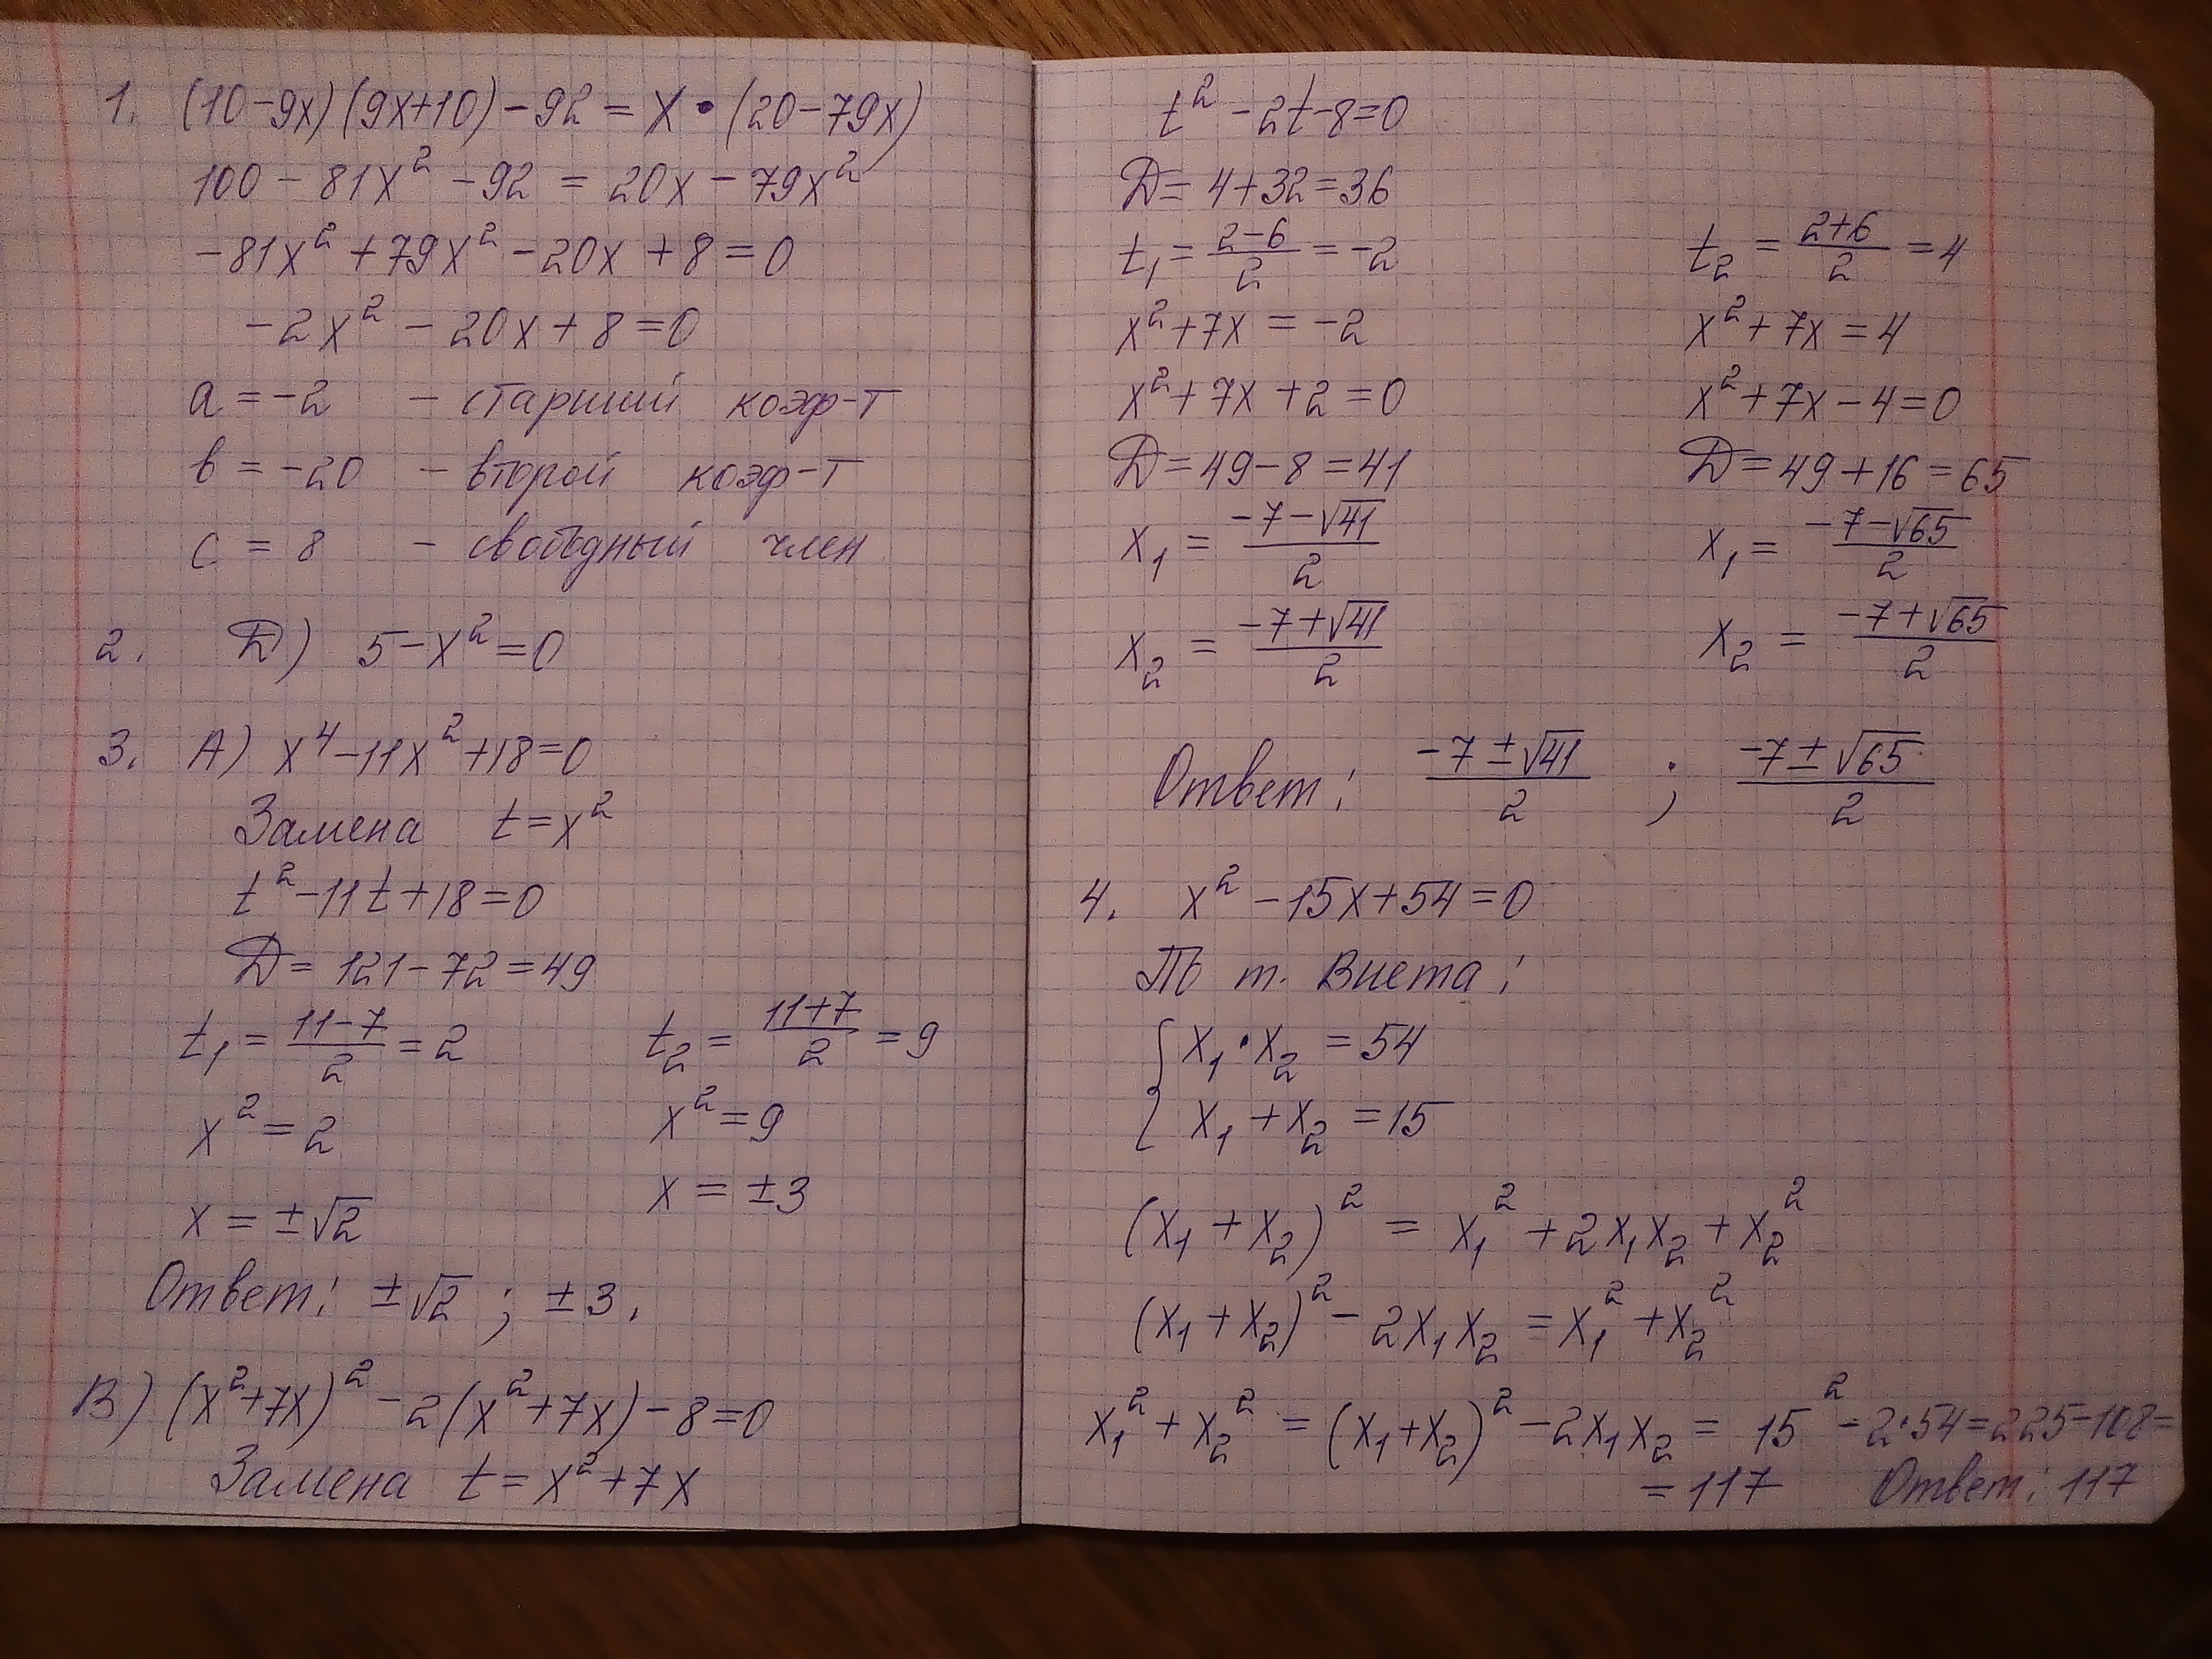 1. (10-9x)(9x+10)-92 = x•(20-79x)
100 - 81x² - 92 = 20x - 79x²
-81x² + 79x² - 20x + 8 = 0
-2x² - 20x + 8 = 0
a = -2 - старший коэф-т
b = -20 - второй коэф-т
c = 8 - свободный член
2. D) 5-x² = 0
3. A) x⁴ - 11x² + 18 = 0
Замена t = x²
t² - 11t + 18 = 0
D = 121 - 72 = 49
t₁ = (11-7)/2 = 2 t₂ = (11+7)/2 = 9
x² = 2 x² = 9
x = ±√2 x = ±3
Ответ: ±√2 ; ±3.
B) (x²+7x)² - 2(x²+7x) - 8 = 0
Замена t = x² + 7x
t² - 2t - 8 = 0
D = 4 + 32 = 36
t₁ = (2-6)/2 = -2 t₂ = (2+6)/2 = 4
x² + 7x = -2 x² + 7x = 4
x² + 7x + 2 = 0 x² + 7x - 4 = 0
D = 49 - 8 = 41 D = 49 + 16 = 65
x₁ = (-7-√41)/2 x₁ = (-7-√65)/2
x₂ = (-7+√41)/2 x₂ = (-7+√65)/2
Ответ: (-7±√41)/2 ; (-7±√65)/2
4. x² - 15x + 54 = 0
По т. Виета:
{ x₁•x₂ = 54
x₁ + x₂ = 15
(x₁ + x₂)² = x₁² + 2x₁x₂ + x₂²
(x₁ + x₂)² - 2x₁x₂ = x₁² + x₂²
x₁² + x₂² = (x₁+x₂)² - 2x₁x₂ = 15² - 2•54 = 225 - 108 =
= 117 Ответ: 117